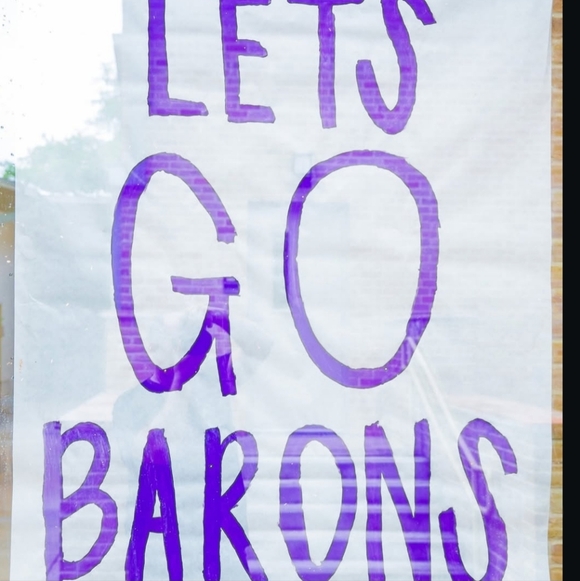 LETS
GO
BARONS